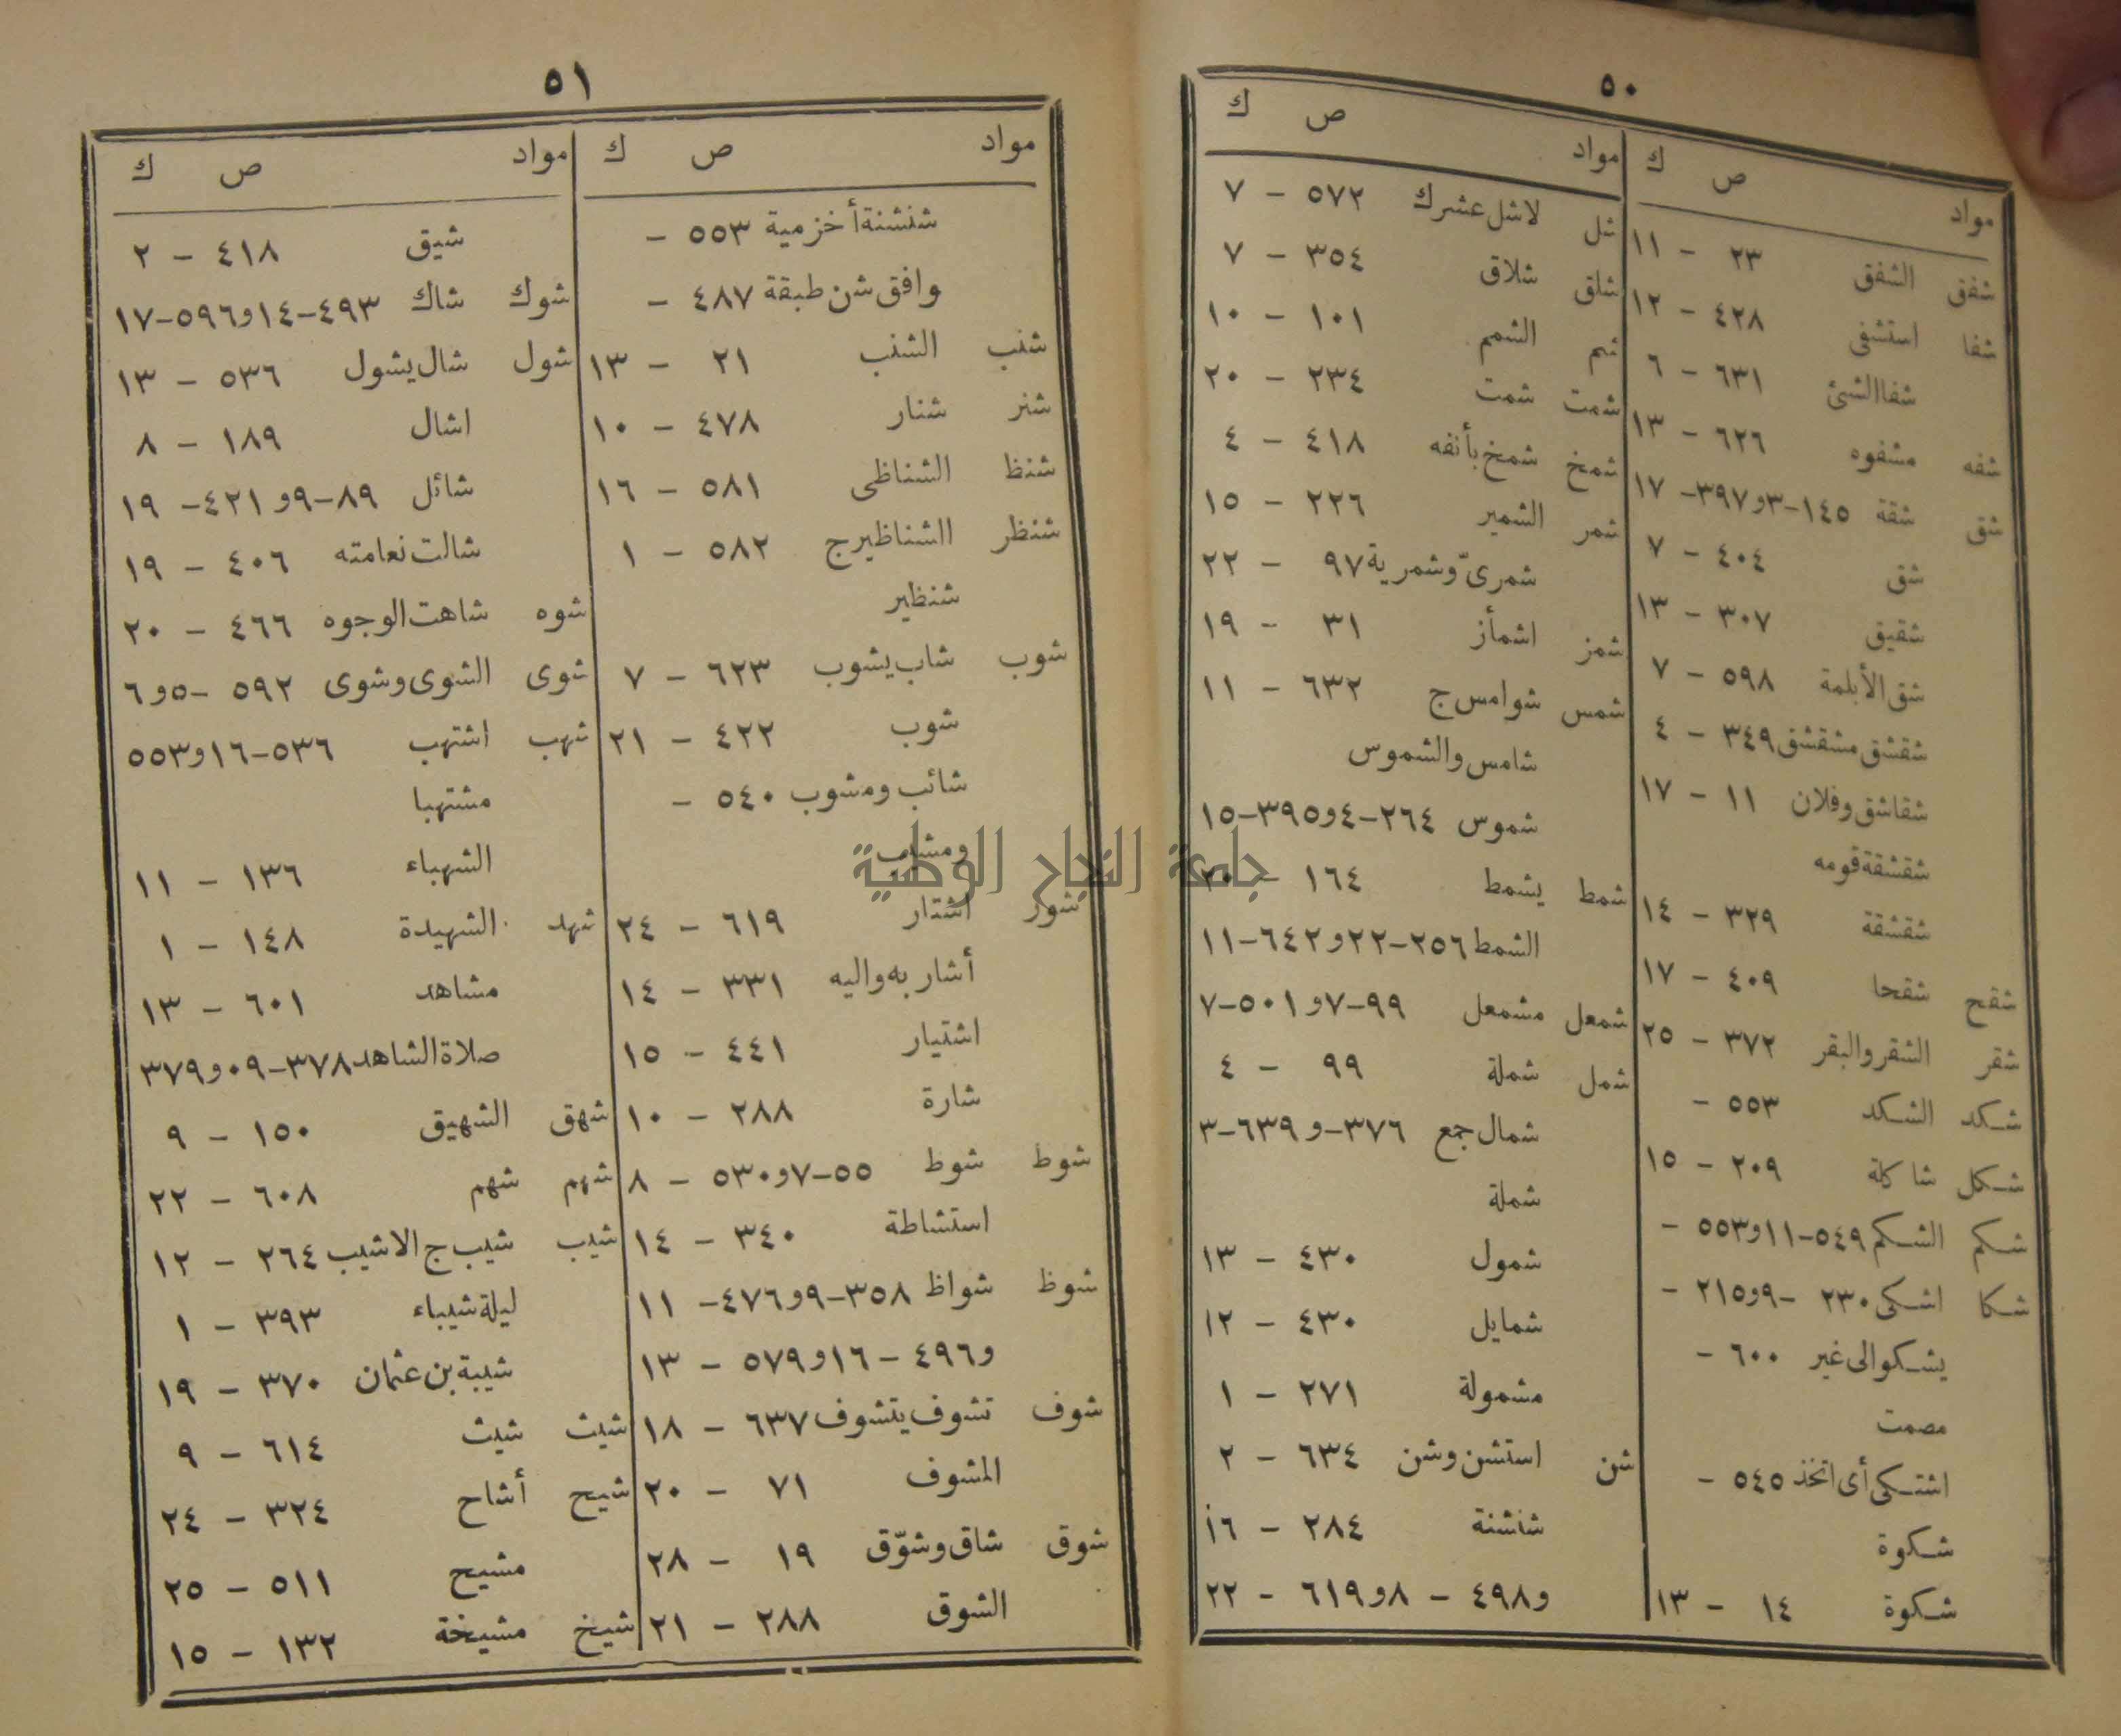 ٥٠
مواد ص ك
شفق الشفق ٢٣ - ١١
شفا استشفى ٤٢٨ - ١٢
شفا الشئ ٦٣١ - ٦
شفه مشفوه ٦٢٦ - ١٣
شق شقة ١٤٥-٣و٣٩٧- ١٧
شق ٤٠٤ - ٧
شقيق ٣٠٧ - ١٣
شق الأبلمة ٥٩٨ - ٧
شقشق مشقشق ٣٤٩ - ٤
شقاشق وفلان ١١ - ١٧
شقشقة قومه
شقشقة ٣٢٩ - ١٤
شقح شقحا ٤٠٩ - ١٧
شقر الشقر والبقر ٣٧٢ - ٢٥
شكد الشكد ٥٥٣ -
شكل شاكلة ٢٠٩ - ١٥
شكم الشكم ٥٤٩-١١و٥٥٣ -
شكا اشكى ٢٣٠ -٩و٢١٥ -
يشكو الى غير ٦٠٠ -
مصمت
اشتكى أى اتخذ ٥٤٥ -
شكوة
شكوة ١٤ - ١٣
مواد ص ك
شل لاشل عشرك ٥٧٢ - ٧
شلق شلاق ٣٥٤ - ٧
شم الشمم ١٠١ - ١٠
شمت شمت ٢٣٤ - ٢٠
شمخ شمخ بأنفه ٤١٨ - ٤
شمر الشمير ٢٢٦ - ١٥
شمرىّ وشمرية ٩٧ - ٢٢
شمز اشمأز ٣١ - ١٩
شمس شوامس ج ٦٣٢ - ١١
شامس والشموس
شموس ٢٦٤-٤و٣٩٥-١٥
شمط يشمط ١٦٤ - ٢٠
الشمط ٢٥٦-٢٢و٦٤٢-١١
شمعل مشمعل ٩٩-٧و٥٠١-٧
شمل شملة ٩٩ - ٤
شمال جمع ٣٧٦-و٦٣٩-٣
شملة
شمول ٤٣٠ - ١٣
شمايل ٤٣٠ - ١٢
مشمولة ٢٧١ - ١
شن استشن وشن ٦٣٤ - ٢
شنشنة ٢٨٤ - ١٦
و٤٩٨ - ٨و٦١٩ - ٢٢
٥١
مواد ص ك
شنشنة أخزمية ٥٥٣ -
وافق شن طبقة ٤٨٧ -
شنب الشنب ٢١ - ١٣
شنر شنار ٤٧٨ - ١٠
شنظ الشناظى ٥٨١ - ١٦
شنظر الشناظير ج ٥٨٢ - ١
شنظير
شوب شاب يشوب ٦٢٣ - ٧
شوب ٤٢٢ - ٢١
شائب ومشوب ٥٤٠ -
ومشاب
شور اشتار ٦١٩ - ٢٤
أشار به واليه ٣٣١ - ١٤
اشتيار ٤٤١ - ١٥
شارة ٢٨٨ - ١٠
شوط شوط ٥٥-٧و٥٣٠ - ٨
استشاطة ٣٤٠ - ١٤
شوظ شواظ ٣٥٨-٩و٤٧٦- ١١
و٤٩٦ - ١٦و٥٧٩ - ١٣
شوف تشوف يتشوف ٦٣٧ - ١٨
المشوف ٧١ - ٢٠
شوق شاق وشوّق ١٩ - ٢٨
الشوق ٢٨٨ - ٢١
مواد ص ك
شيق ٤١٨ - ٢
شوك شاك ٤٩٣-١٤و٥٩٦-١٧
شول شال يشول ٥٣٦ - ١٣
اشال ١٨٩ - ٨
شائل ٨٩-٩و ٤٢١- ١٩
شالت نعامته ٤٠٦ - ١٩
شوه شاهت الوجوه ٤٦٦ - ٢٠
شوى الشوى وشوى ٥٩٢ -٥و٦
شهب اشتهب ٥٣٦-١٦و٥٥٣
مشتهبا
الشهباء ١٣٦ - ١١
شهد الشهيدة ١٤٨ - ١
مشاهد ٦٠١ - ١٣
صلاة الشاهد ٣٧٨-٠٩و٣٧٩
شهق الشهيق ١٥٠ - ٩
شهم شهم ٦٠٨ - ٢٢
شيب شيب ج الاشيب ٢٦٤ - ١٢
ليلة شيباء ٣٩٣ - ١
شيبة بن عثمان ٣٧٠ - ١٩
شيث شيث ٦١٤ - ٩
شيح أشاح ٣٢٤ - ٢٤
مشيح ٥١١ - ٢٥
شيخ مشيخة ١٣٢ - ١٥
جامعة النجاح الوطنية